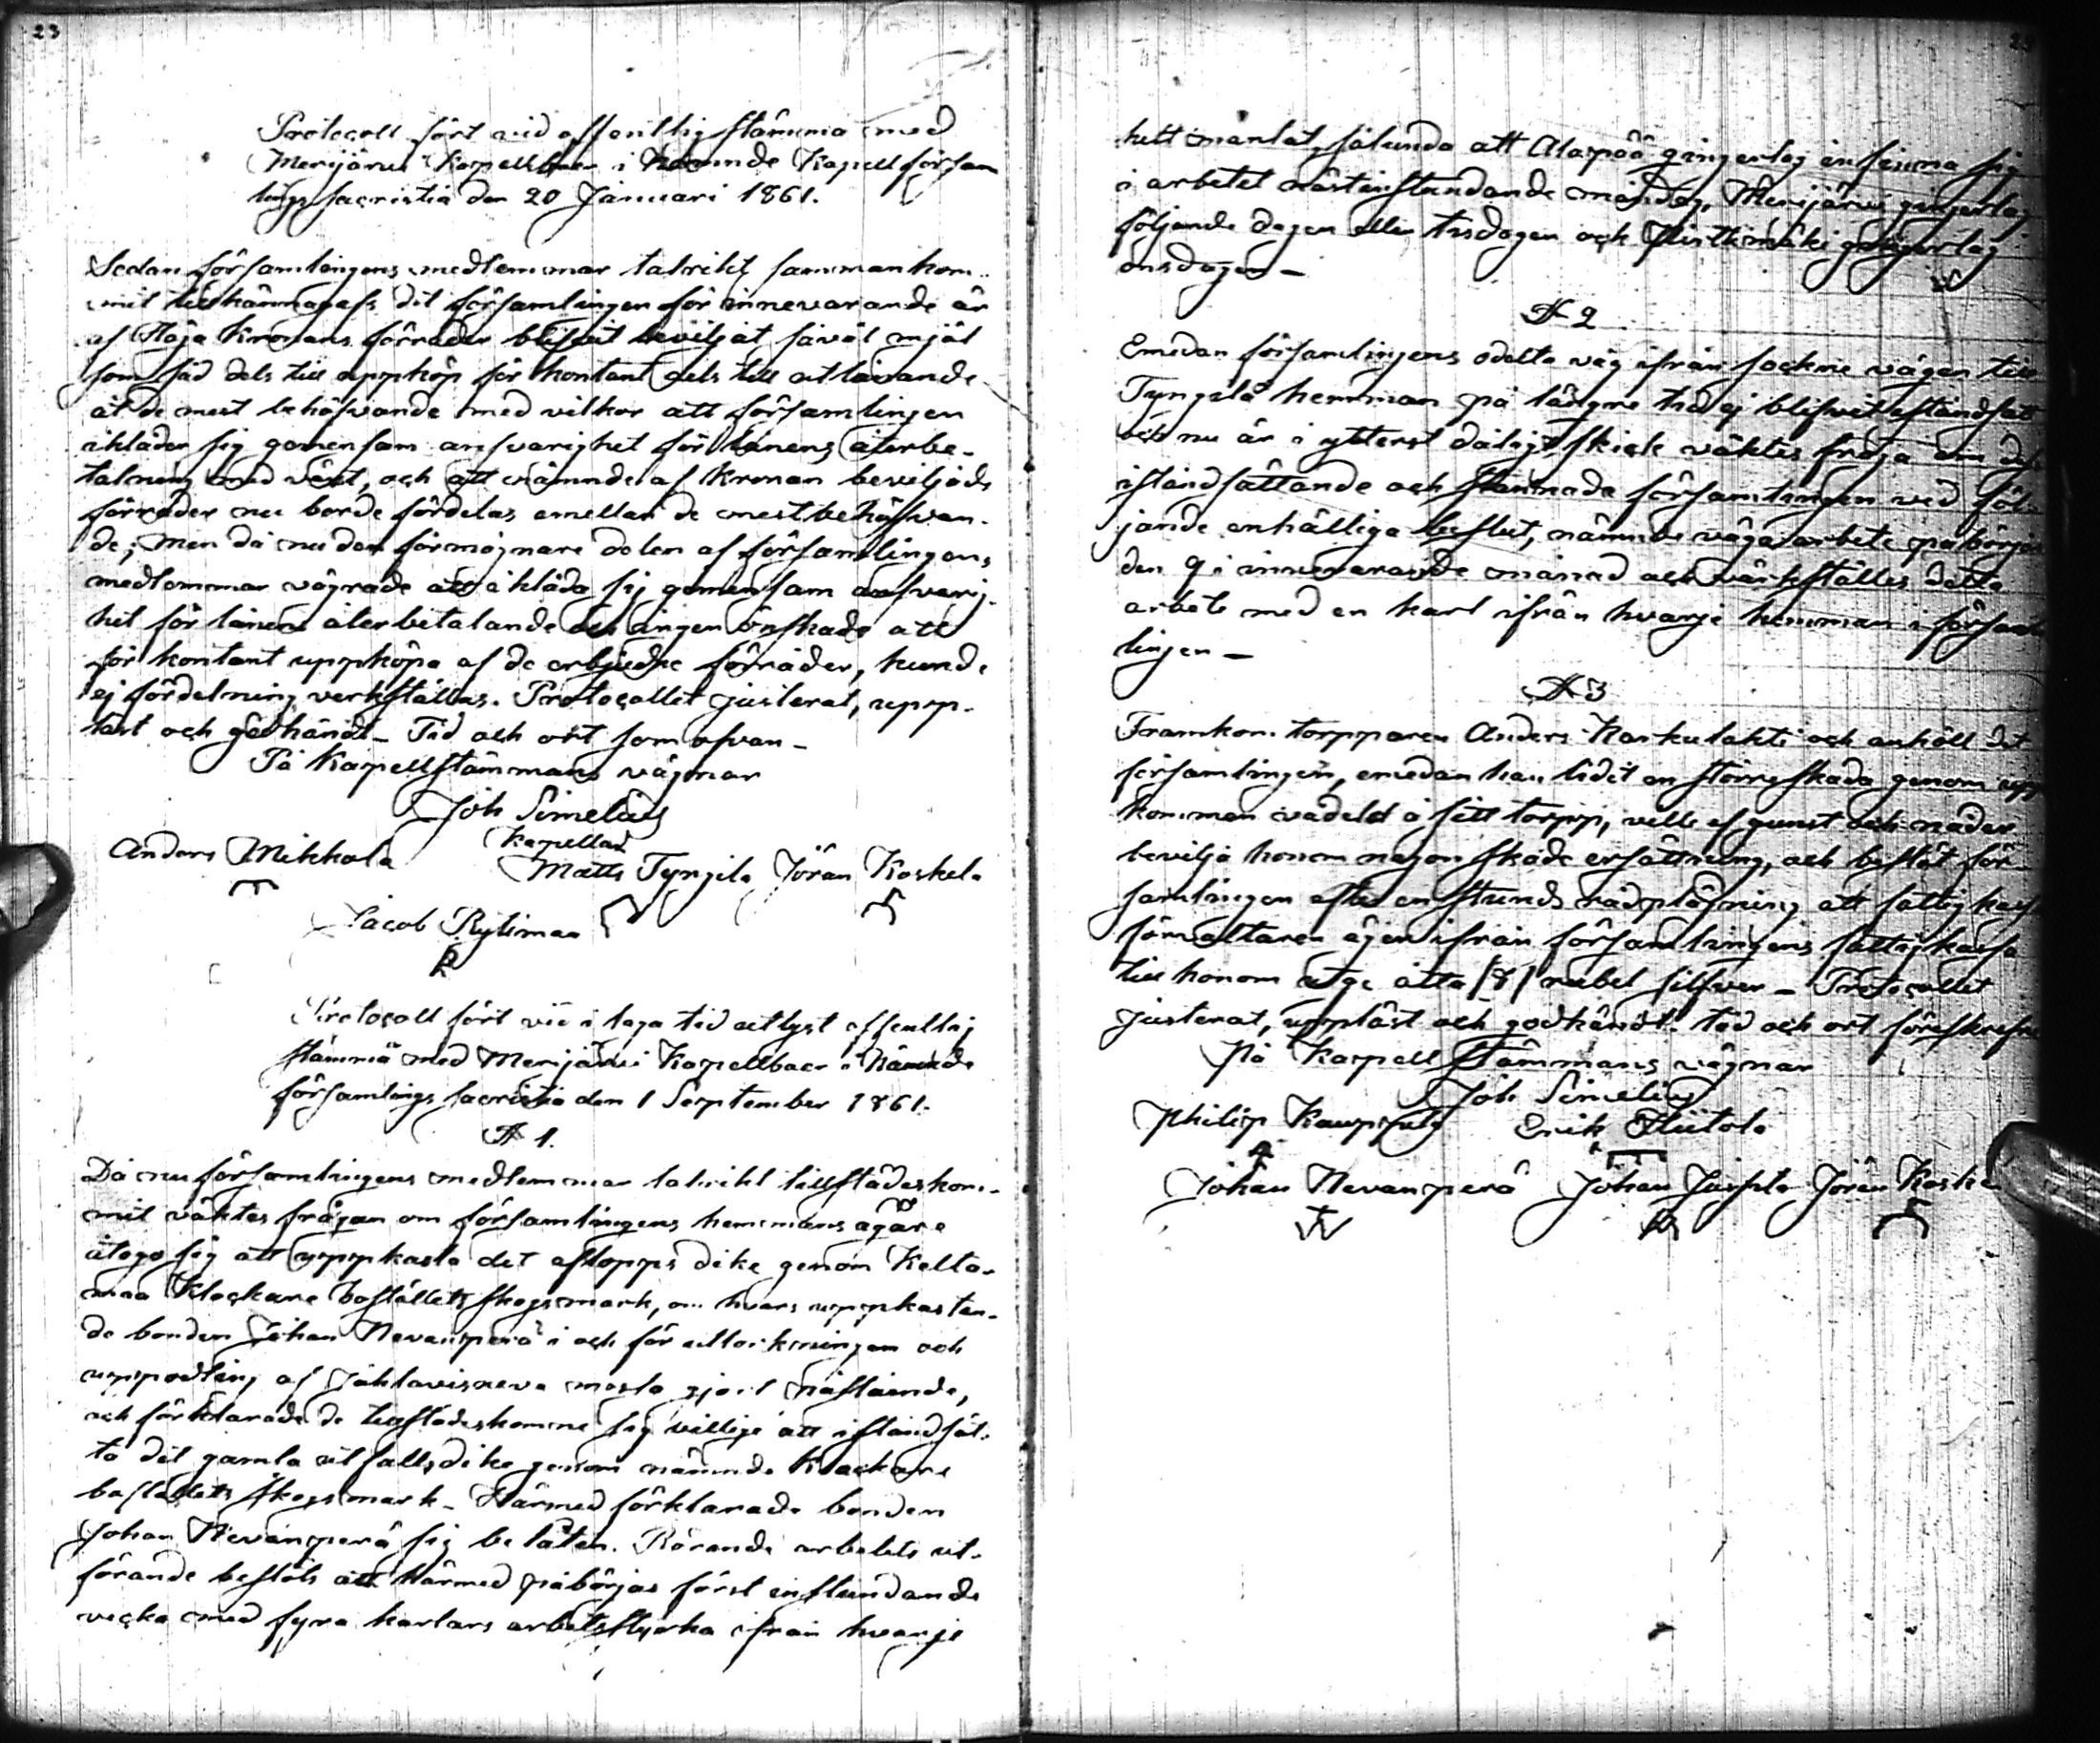 23
Protocoll fört vid offentlig stämma med
Merijärvi Kapellboer i Kapellförsam
lings sacristia den 20 Januari 1861.
Sedan församlingens medlemmar talrikt sammankom-
mit det församlingen för innevarande år
af Höga Kronans förråder blifvit beviljat såväl mjöl
som säd dels till uppköp för kontant dels till utlånande
åt de mest behöfvande med vilkor att församlingen
ikläder sig gemensam ansvarighet för lånens återbe-
talning med växt, och att nämnde af Kronan beviljade
förråder nu borde fördelas emellan de mest behöfvan-
de; men då nu den förmögnare delen af församlingens
medlemmar vägrade att ikläda sig gemensam ansvarig-
het för lånens återbetalande och ingen önskade att
för kontant uppköpa af de erbjudne förråder, kunde
ej fördelning verkställas. Protocollet justerat, upp-
läst och godkändt – Tid och ort som ofvan –
På Kapellstämmans vägnar
Joh Simelius
Kapellan
Anders Mikkola Matts Tyngilä Jöran Koskela
Jacob Rytiman
Protocoll fört vid i laga tid utlyst offentlig
stämma med Merijärvi Kapellboer i nämnde
församlings sacristia den 1 September 1861.
N 1.
Då nu församlingens medlemmar talrikt tillstädeskom-
mit väktes frågan om församlingens hemmans ägare
åtogo sig att uppkasta det aflopps dike genom Kelto-
maa Klockare boställets skogsmark, om hvars uppkastan-
de bonden Johan Nevanperä i och för uttorkningen och
uppodling af mosse gjort påstående,
och förklarade de tillstädeskomne sig villige att iståndsät-
ta det gamla utfallsdike genom nämnde Klockare
boställets skogsmark – Härmed förklarade bonden
Johan Nevanperä sig belåten. Rörande arbetets ut-
förande beslöts att härmed påbörjas först instundande
vecka med fyra karlars arbetsstyrka ifrån hvarje
helt mantal, sålunda att Alapää gingerlag infinna sig
i arbetet nästinstundande måndag, Merijärvi gingerlag
följande dagen eller tisdagen och gingerlag
onsdagen –
N 2
Emedan församlingens odelta väg ifrån sockne vägen till
Tyngilä hemman på längre tid ej blifvit iståndsatt
och nu är i ytterst dåligt skick väktes fråga om dess
iståndsättande och stannade församlingen vid föl-
jande enhälliga beslut, nämnde väga arbete påbörjas
den 9 i innevarande månad och värkställes detta
arbete med en karl ifrån hvarje hemman i försam
lingen –
N 3
Framkom torpparen Anders Karkulahti och anhöll det
församlingen, emedan han lidit en större skada genom upp
kommen vådeld å sitt torpp, ville af gunst och nåder
bevilja honom någon skade ersättning, och beslöt för-
samlingen efter en stunds rådplägning att fattig kass
förvaltaren ägen ifrån församlingens fattigkassa
till honom utge åtta /8/ rubel silfver – Protocollet
justerat, uppläst och godkändt. tid och ort föreskrefne
På Kapell Stämmans vägnar
Joh Simelius
Philip Kauppila Erik Hiitola
Johan Nevanperä Johan Jöran Koske